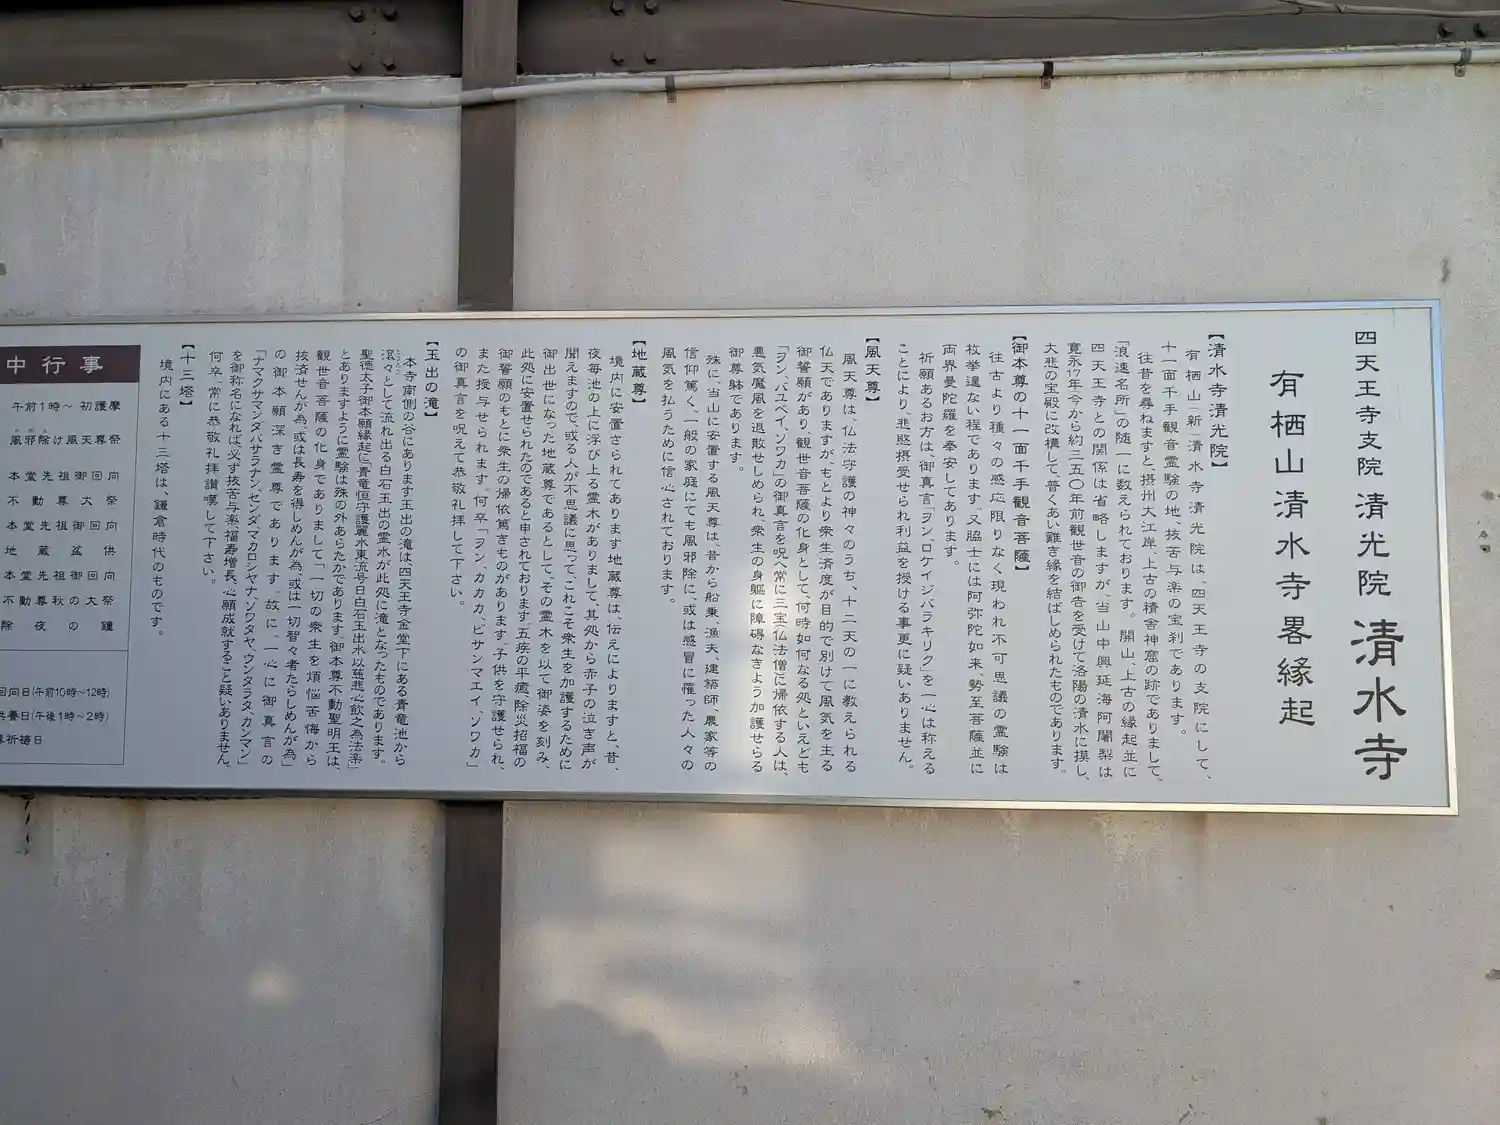 四天王寺支院 清光院 清水寺
有栖山清水寺畧縁起
【清水寺清光院】
有栖山(新)清水寺清光院は、四天王寺の支院にして、
十一面千手観音霊験の地、抜苦与楽の宝刹であります。
往昔を尋ねますと、摂州大江岸、上古の積舎神窟の跡でありまして、
「浪速名所」の随一に数えられております。開山、上古の縁起並に
四天王寺との関係は省略しますが、当山中興延海阿闍梨は
寛永17年今から約三五〇年前観世音の御告を受けて洛陽の清水に摸し、
大悲の宝殿に改構して、普くあい難き縁を結ばしめられたものであります。
【御本尊の十一面千手観音菩薩】
往古より種々の感応限りなく現われ不可思議の霊験は
枚挙遑ない程であります。又脇士には阿弥陀如来、勢至菩薩並に
両界曼陀羅を奉安してあります。
祈願あるお方は、御真言「ヲン、ロケイジバラキリク」を一心は称える
ことにより、悲愍摂受せられ利益を授ける事更に疑いありません。
【風天尊】
風天尊は、仏法守護の神々のうち、十二天の一に教えられる
仏天でありますが、もとより衆生済度が目的で別けて風気を主る
御誓願があり、観世音菩薩の化身として、何時如何なる処といえども
「ヲン、バユベイ、ソワカ」の御真言を呪へ常に三宝(仏法僧)に帰依する人は、
悪気魔風を退散せしめられ、衆生の身軀に障碍なきよう加護せらるる
御尊躰であります。
殊に、当山に安置する風天尊は、昔から船乗、漁夫、建築師、農家等の
信仰篤く、一般の家庭にても風邪除に、或は感冒に罹った人々の
風気を払うために信心されております。
【地蔵尊】
境内に安置さられてあります地蔵尊は、伝えによりますと、昔、
夜毎池の上に浮び上る霊木がありまして、其処から赤子の泣き声が
聞えますので、或る人が不思議に思って、これこそ衆生を加護するために
御出世になった地蔵尊であるとして、その霊木を以て御姿を刻み、
此処に安置せられたのであると申されております。五疾の平癒、除災招福の
御誓願のもとに衆生の帰依篤きものがあります。子供を守護せられ、
また授与せられます。何卒「ヲン、カカカ、ビサンマエイ、ソワカ」
の御真言を呪えて恭敬礼拝して下さい。
【玉出の滝】
本寺南側の谷にあります玉出の滝は、四天王寺金堂下にある青竜池から
滾々として流れ出る白石玉出の霊水が此処に滝となったものであります。
聖徳太子御本願縁起に「青竜恒守護麗水東流号日白石玉出水以慈悲心飲之為法楽」
とありますように霊験は殊の外あらたかであります。御本尊不動聖明王は、
観世音菩薩の化身でありまして「一切の衆生を煩悩苦侮から
抜済せんが為、或は長寿を得しめんが為、或は一切智々者たらしめんが為」
の御本願深き霊尊であります。故に、一心に御真言の
「ナマクサマンダバサラナン、センダマカロシヤナ、ソワタヤ、ウンタラタ、カンマン」
を御称名になれば、必ず抜苦与楽、福寿増長、心願成就すること疑いありません。
何卒、常に恭敬礼拝讃嘆して下さい。
【十三塔】
境内にある十三塔は、鎌倉時代のものです。
中行事
午前1時〜 初護摩
風邪除け風天尊祭
本堂先祖御回向
不動尊大祭
本堂先祖御回向
地蔵盆供
本堂先祖御回向
不動尊秋の大祭
除夜の鐘
回向日(午前10時〜12時)
供養日(午後1時〜2時)
祈祷日